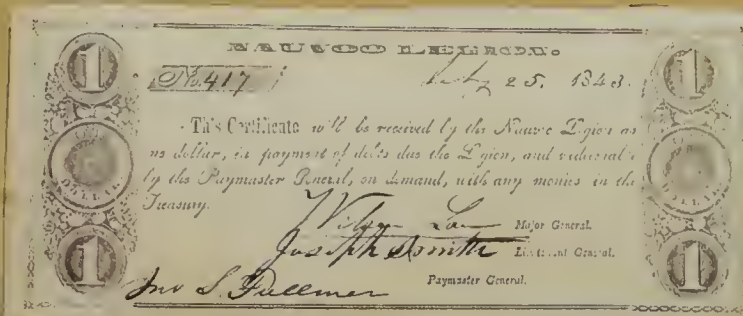 1 NAUVOO LEGION. 1
No. 417 July 25. 1843.
This Certificate will be received by the Nauvoo Legion as
one dollar, in payment of debts due the Legion, and redeemable
by the Paymaster General, on demand, with any monies in the
Treasury.
ONE DOLLAR
DOLLAR
Wilson Law Major General.
Joseph Smith Lieutenant General.
1 1
Jno S. Fullmer Paymaster General.